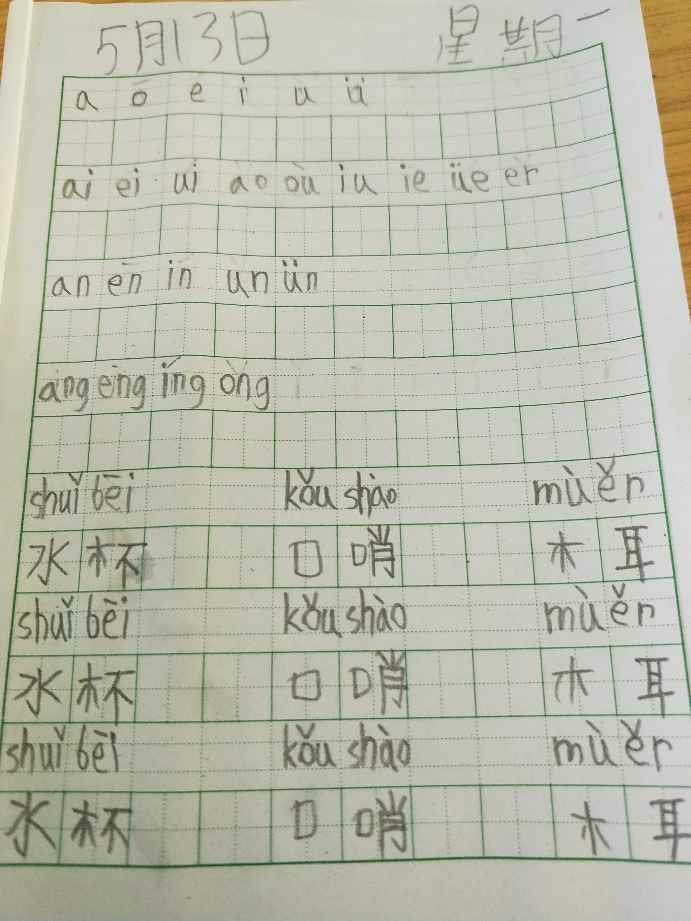 5月13日 星期一
ā ō ē i u ü
ai ei ui ào où iu ie üe er
an ēn in un ün
ang eng ǐng òng
shuǐ bēi kǒu shào mù ěr
水杯 口哨 木耳
shuǐ bēi kǒu shào mù ěr
水杯 口哨 木耳
shuǐ bēi kǒu shào mù ěr
水杯 口哨 木耳